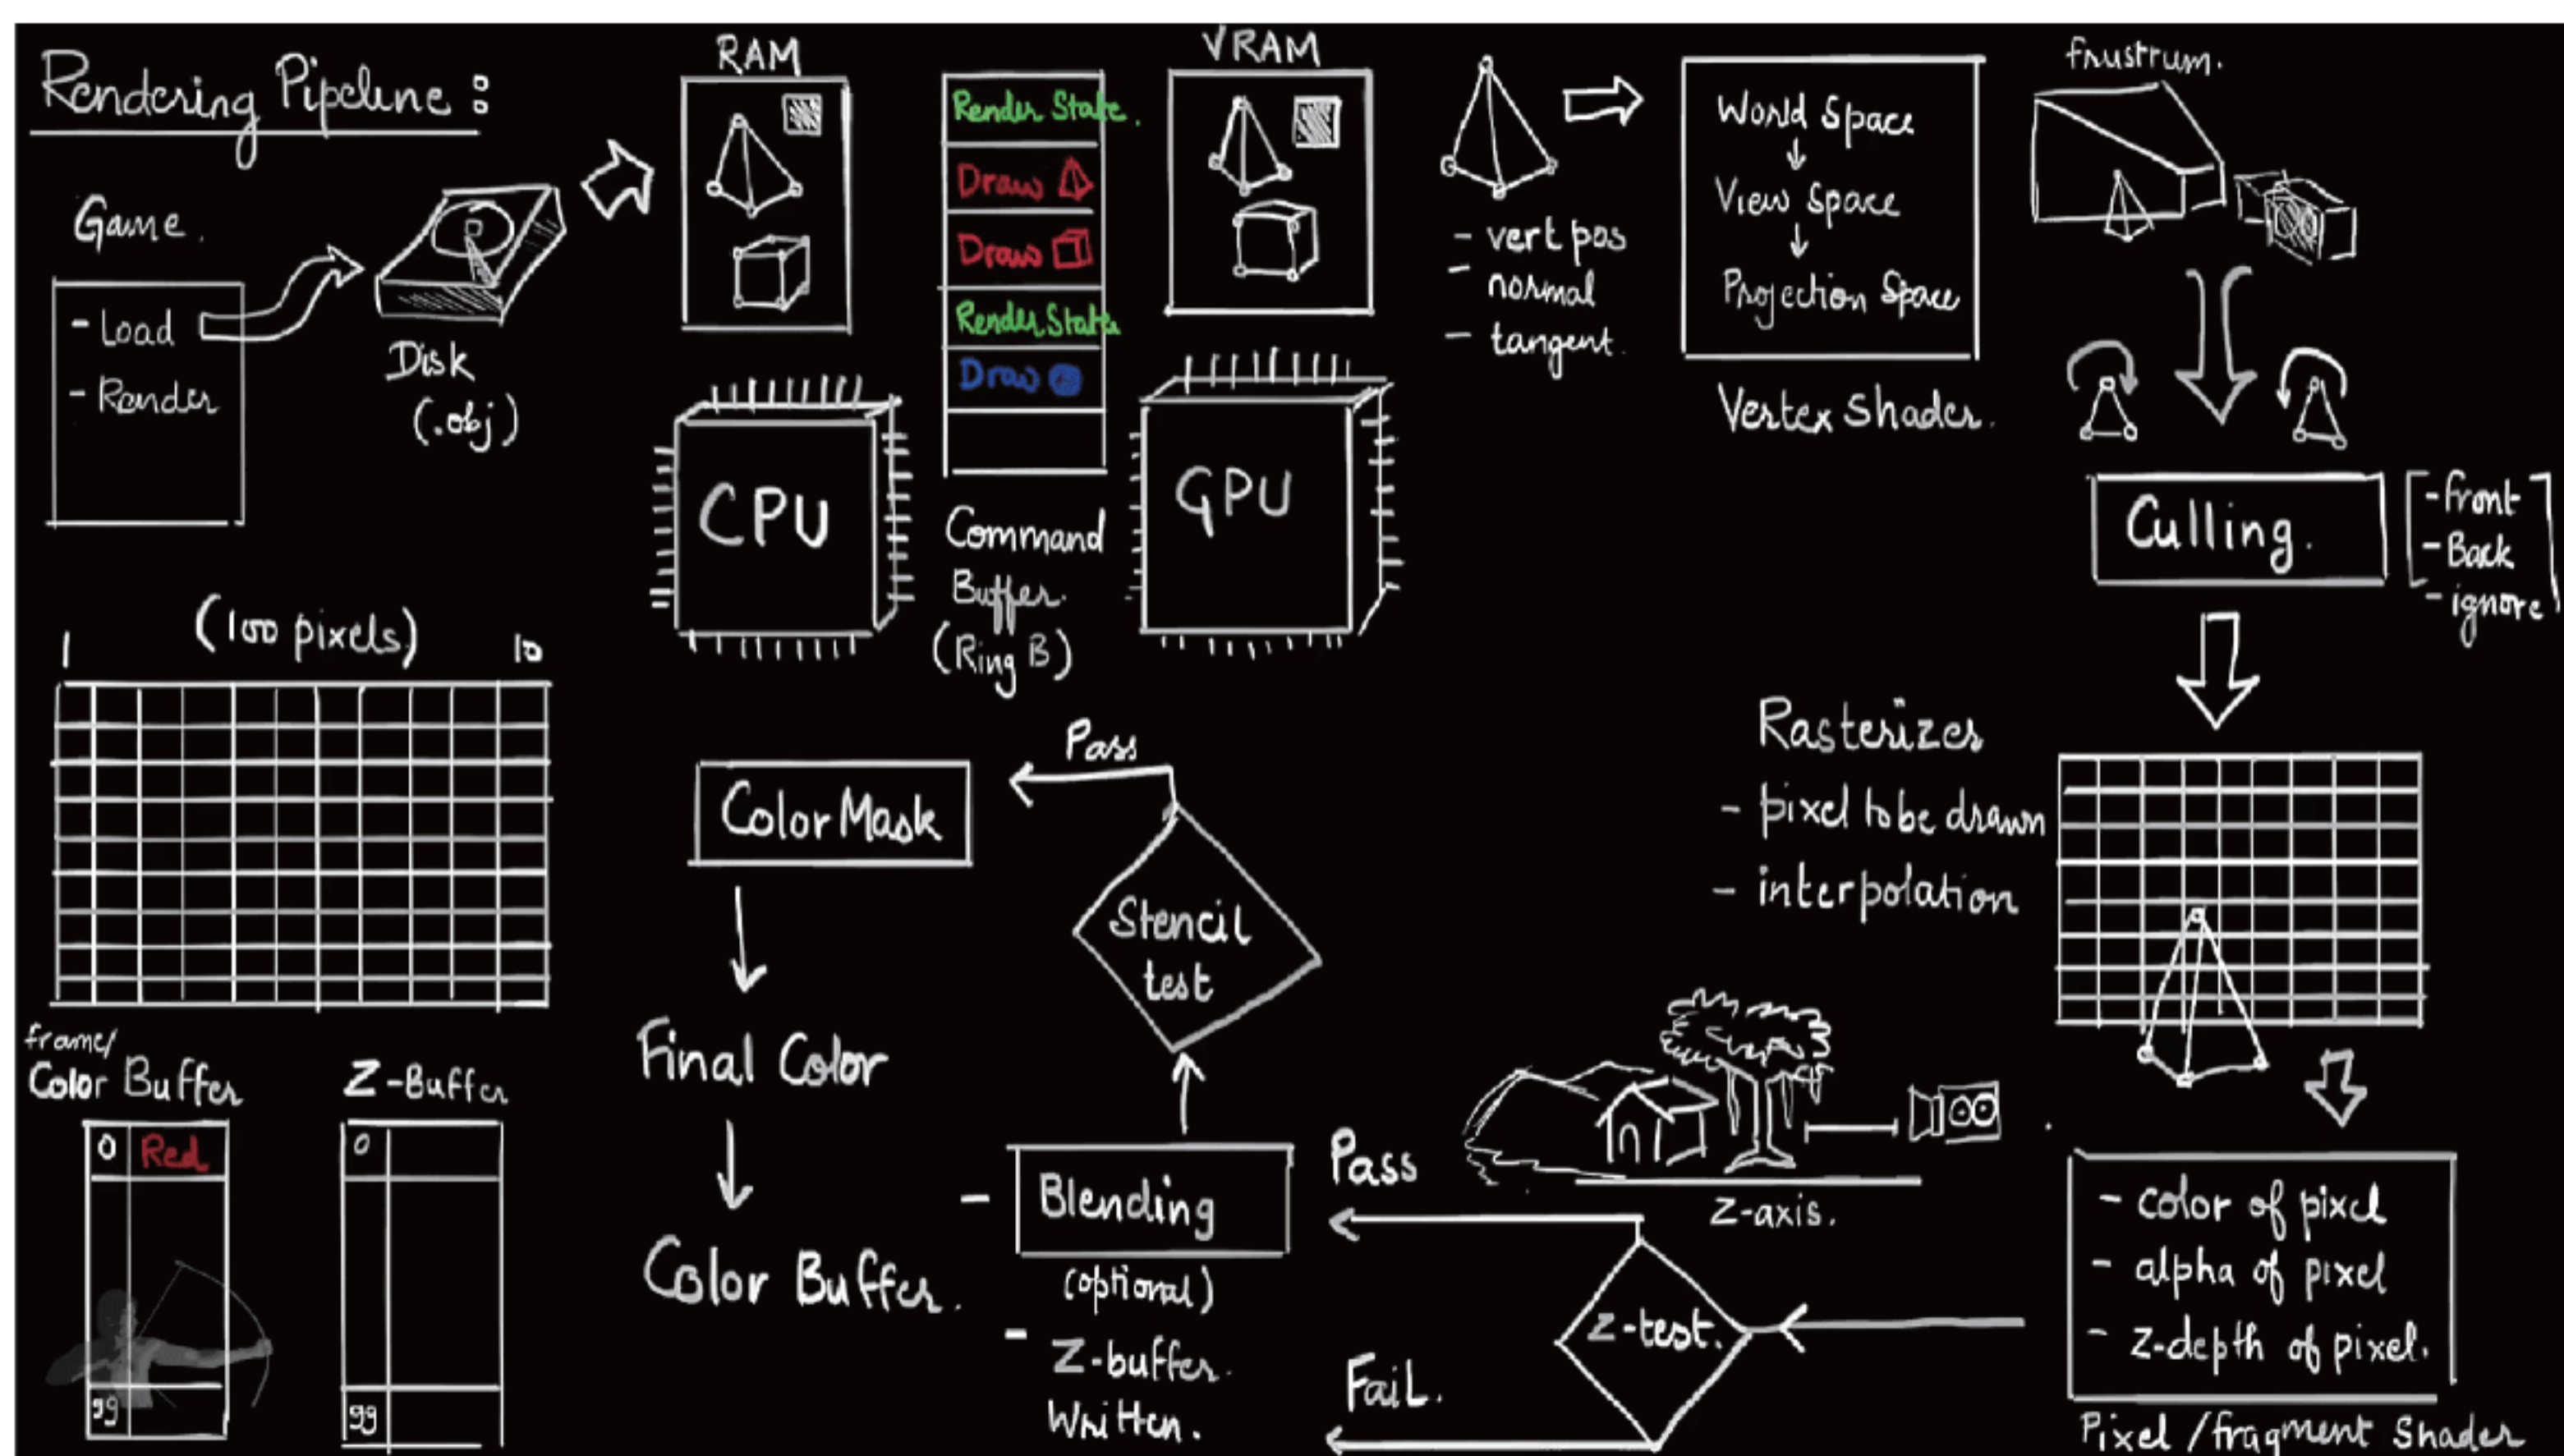 Rendering Pipeline :
Game.
- Load
- Render
Disk
(.obj)
RAM
CPU
Render State.
Draw
Draw
Render State
Draw
Command
Buffer.
(Ring B)
VRAM
GPU
- vert pos
- normal
- tangent.
World Space
View Space
Projection Space
Vertex Shader.
frustrum.
Culling.
- front
- Back
- ignore
Rasterizes
- pixel to be drawn
- interpolation
- color of pixel
- alpha of pixel
- z-depth of pixel.
Pixel / fragment Shader
z-axis.
z-test.
Pass
Fail.
- Blending
(optional)
- Z-buffer.
Written.
Stencil
test
Pass
Color Mask
Final Color
Color Buffer.
(100 pixels)
1 10
frame/
Color Buffer
0 Red
99
Z-Buffer
0
99